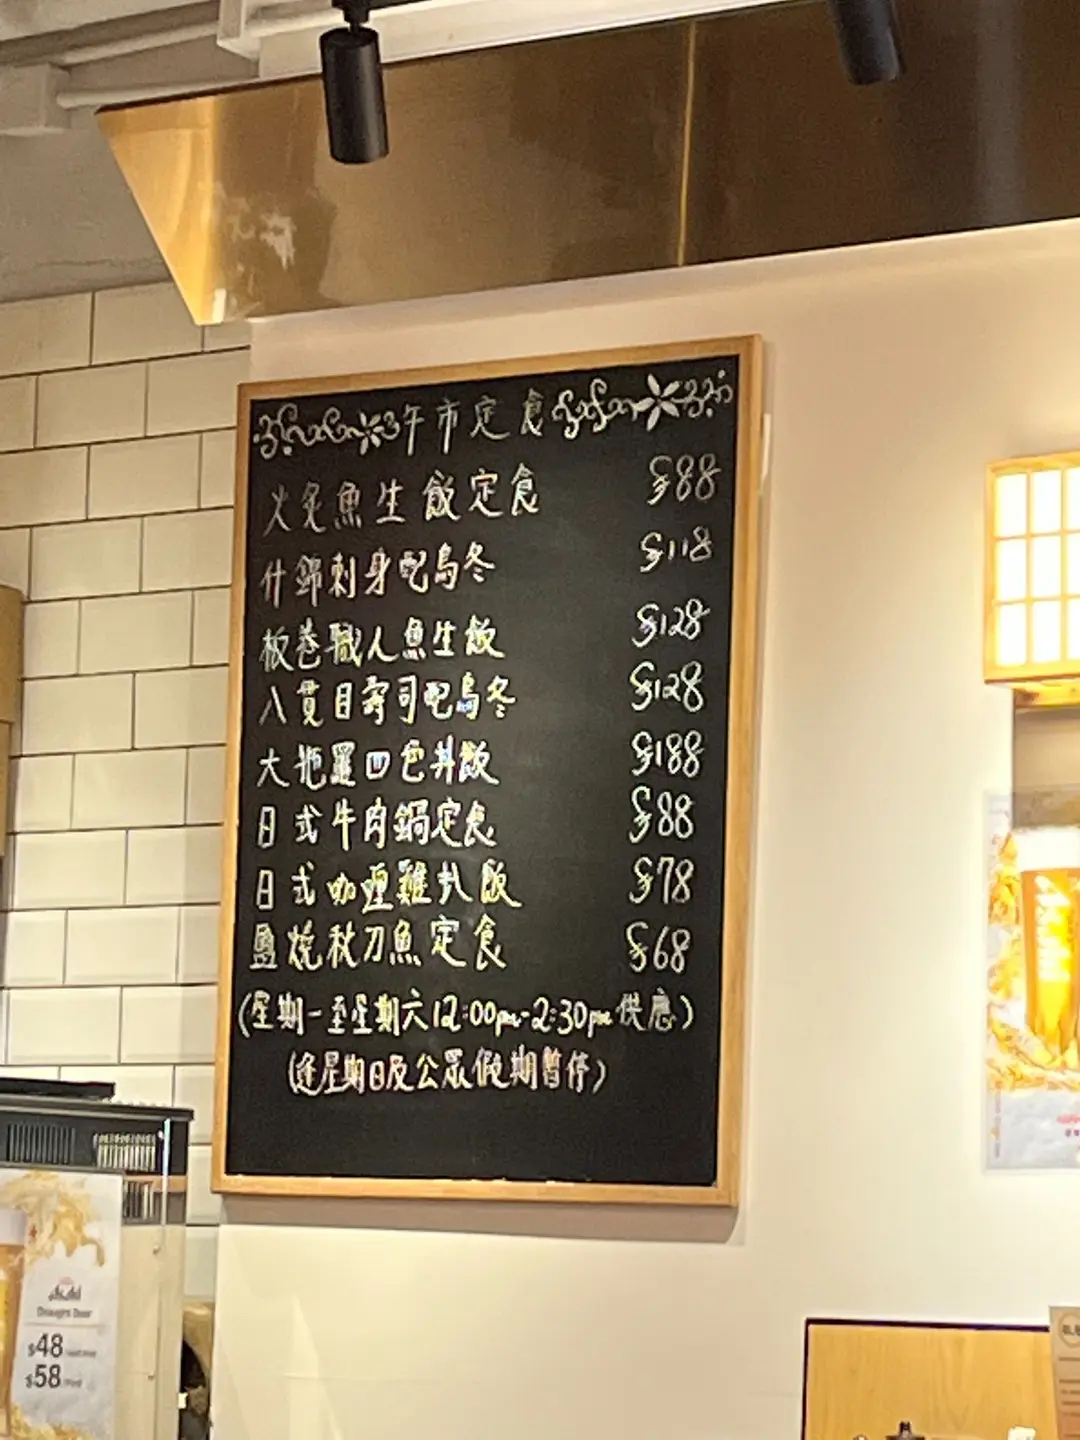 午市定食
火炙魚生飯定食 $88
什錦刺身配烏冬 $118
板卷職人魚生飯 $128
八貫目壽司配烏冬 $128
大拖羅四色丼飯 $188
日式牛肉鍋定食 $88
日式咖喱雞扒飯 $78
鹽燒秋刀魚定食 $68
(星期一至星期六12:00pm-2:30pm供應)
(逢星期日及公眾假期暫停)
Asahi
Draught Beer
$48
$58